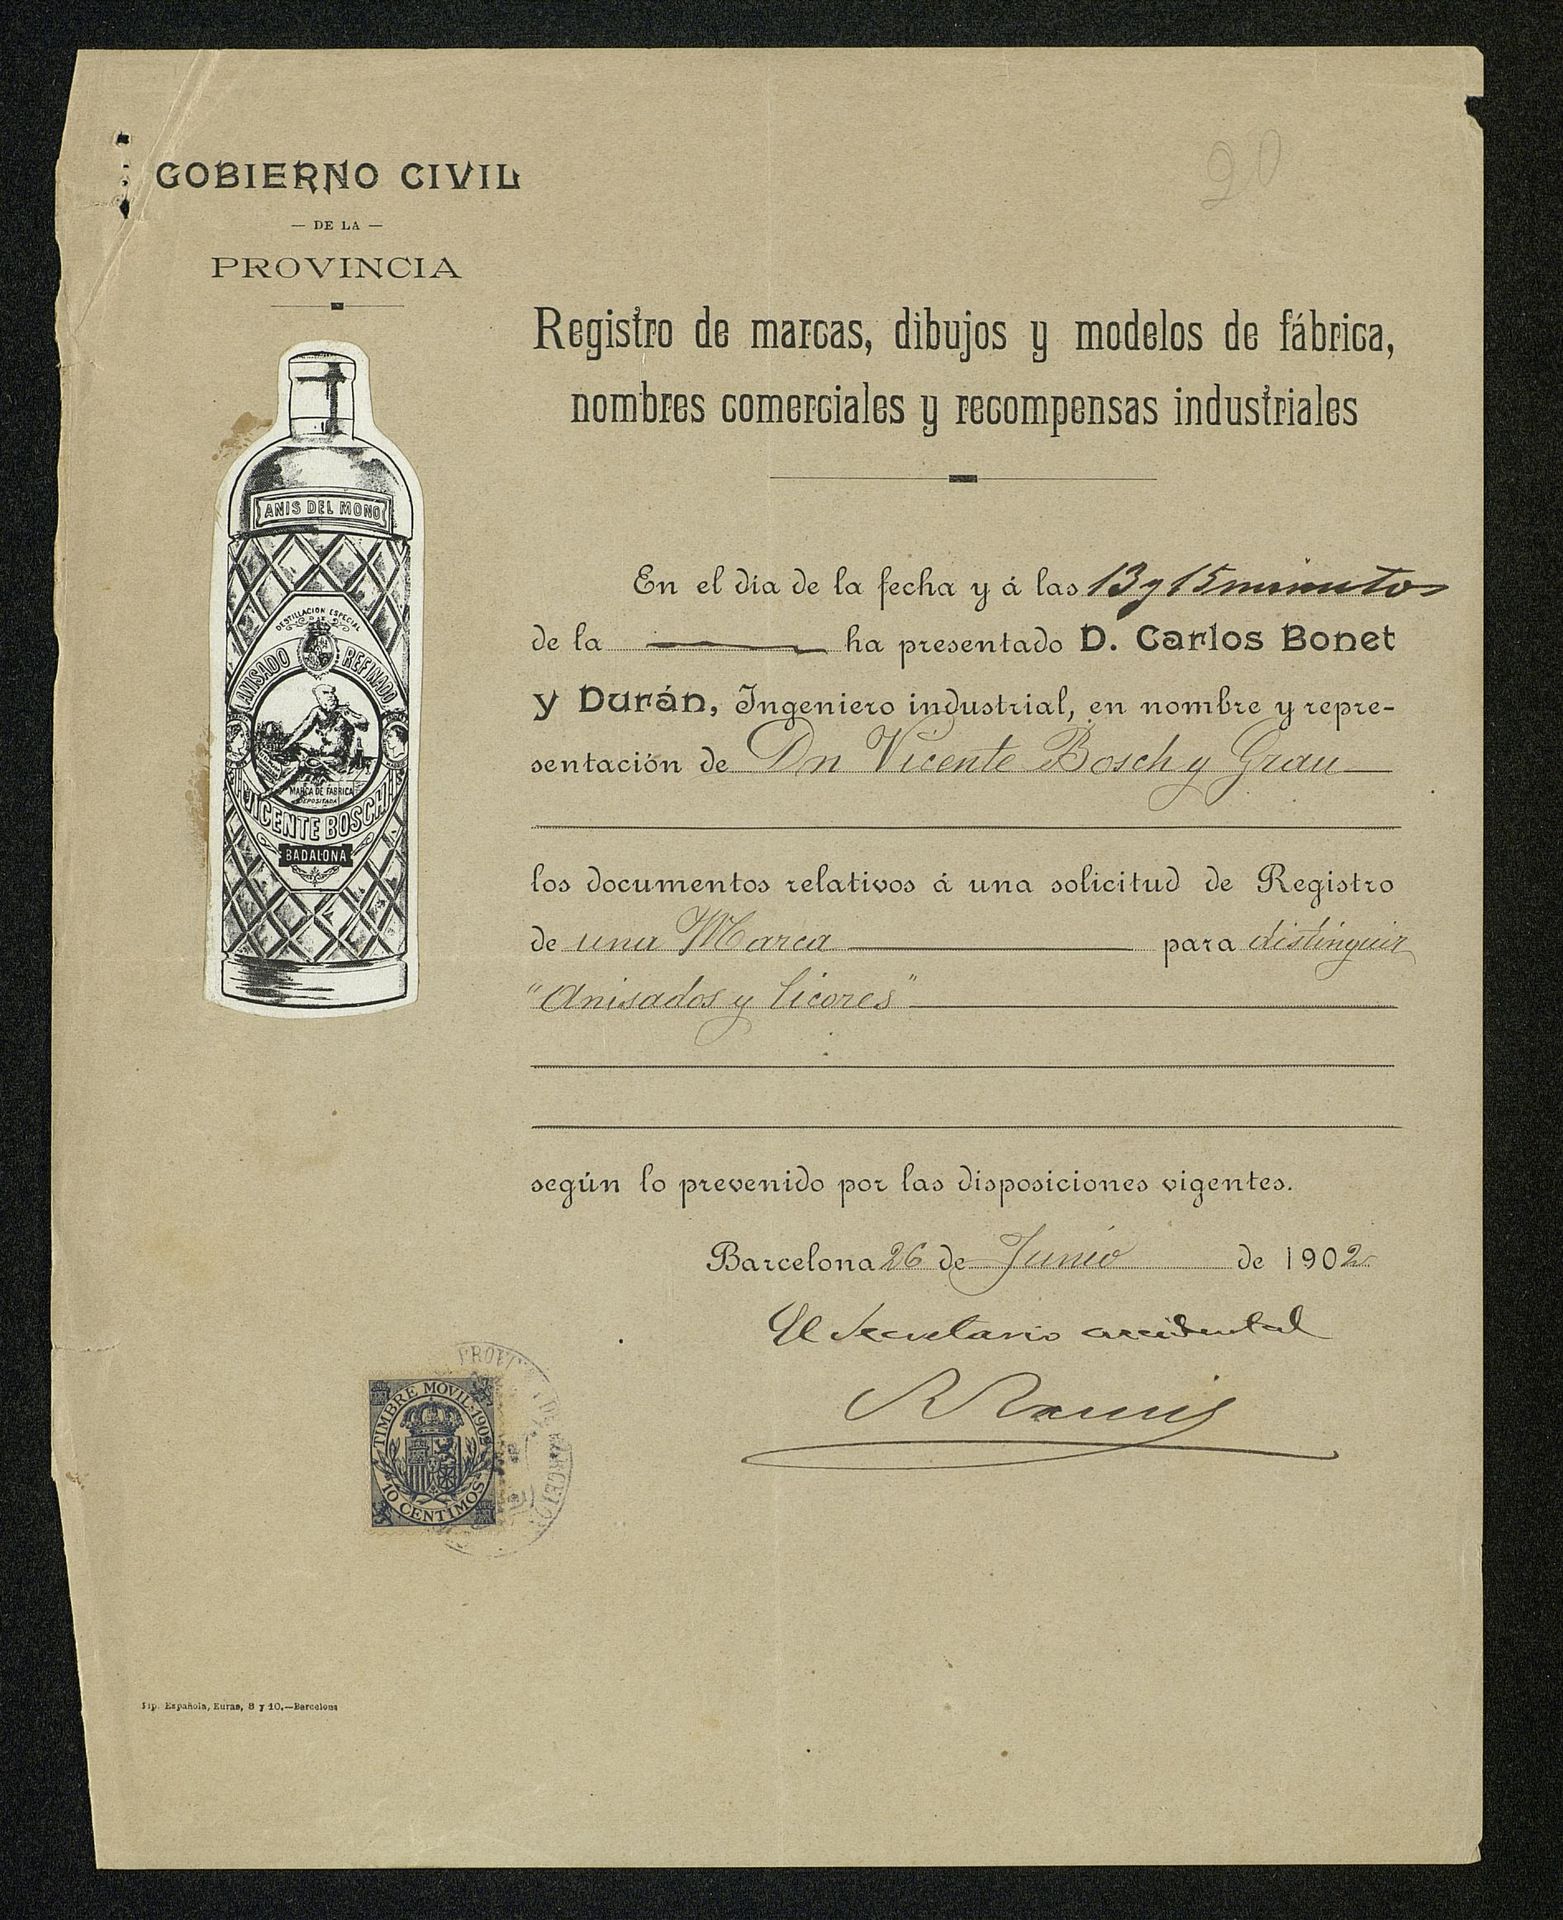 20
GOBIERNO CIVIL
— DE LA —
PROVINCIA
Registro de marcas, dibujos y modelos de fábrica,
nombres comerciales y recompensas industriales
ANIS DEL MONO
DESTILLACION ESPECIAL
ANISADO REFINADO
MARCA DE FÁBRICA
DEPOSITADA
VICENTE BOSCH
BADALONA
En el dia de la fecha y á las 13 y 15 minutos
de la ha presentado D. Carlos Bonet
y Durán, Ingeniero industrial, en nombre y repre-
sentación de Dn Vicente Bosch y Grau
los documentos relativos á una solicitud de Registro
de una Marca para distinguir
"Anisados y licores"
según lo prevenido por las disposiciones vigentes.
Barcelona 26 de Junio de 1902
El Secretario accidental
R Ramis
TIMBRE MOVIL·1902
10 CENTIMOS
Tip. Española, Euras, 8 y 10.—Barcelona